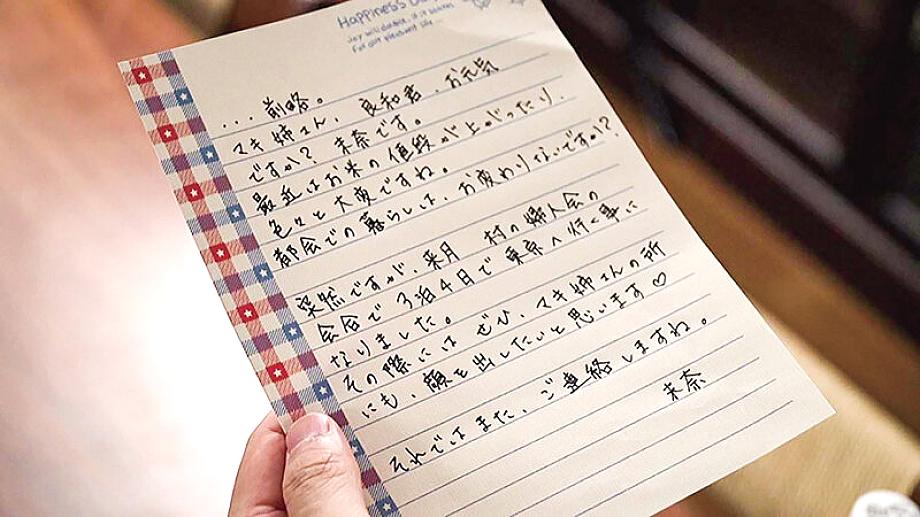 Happiness
Joy
For our pleasant life...
...前略。
マキ姉さん、良和君、お元気
ですか? 未奈です。
最近はお米の値段が上がったり、
色々と大変ですね。
都会での暮らしは、お変わりないですか?
突然ですが、来月 村の婦人会の
会合で3泊4日で東京へ行く事に
なりました。
その際には ぜひ、マキ姉さんの所
にも、顔を出したいと思います♡
それではまた、ご連絡しますね。
未奈